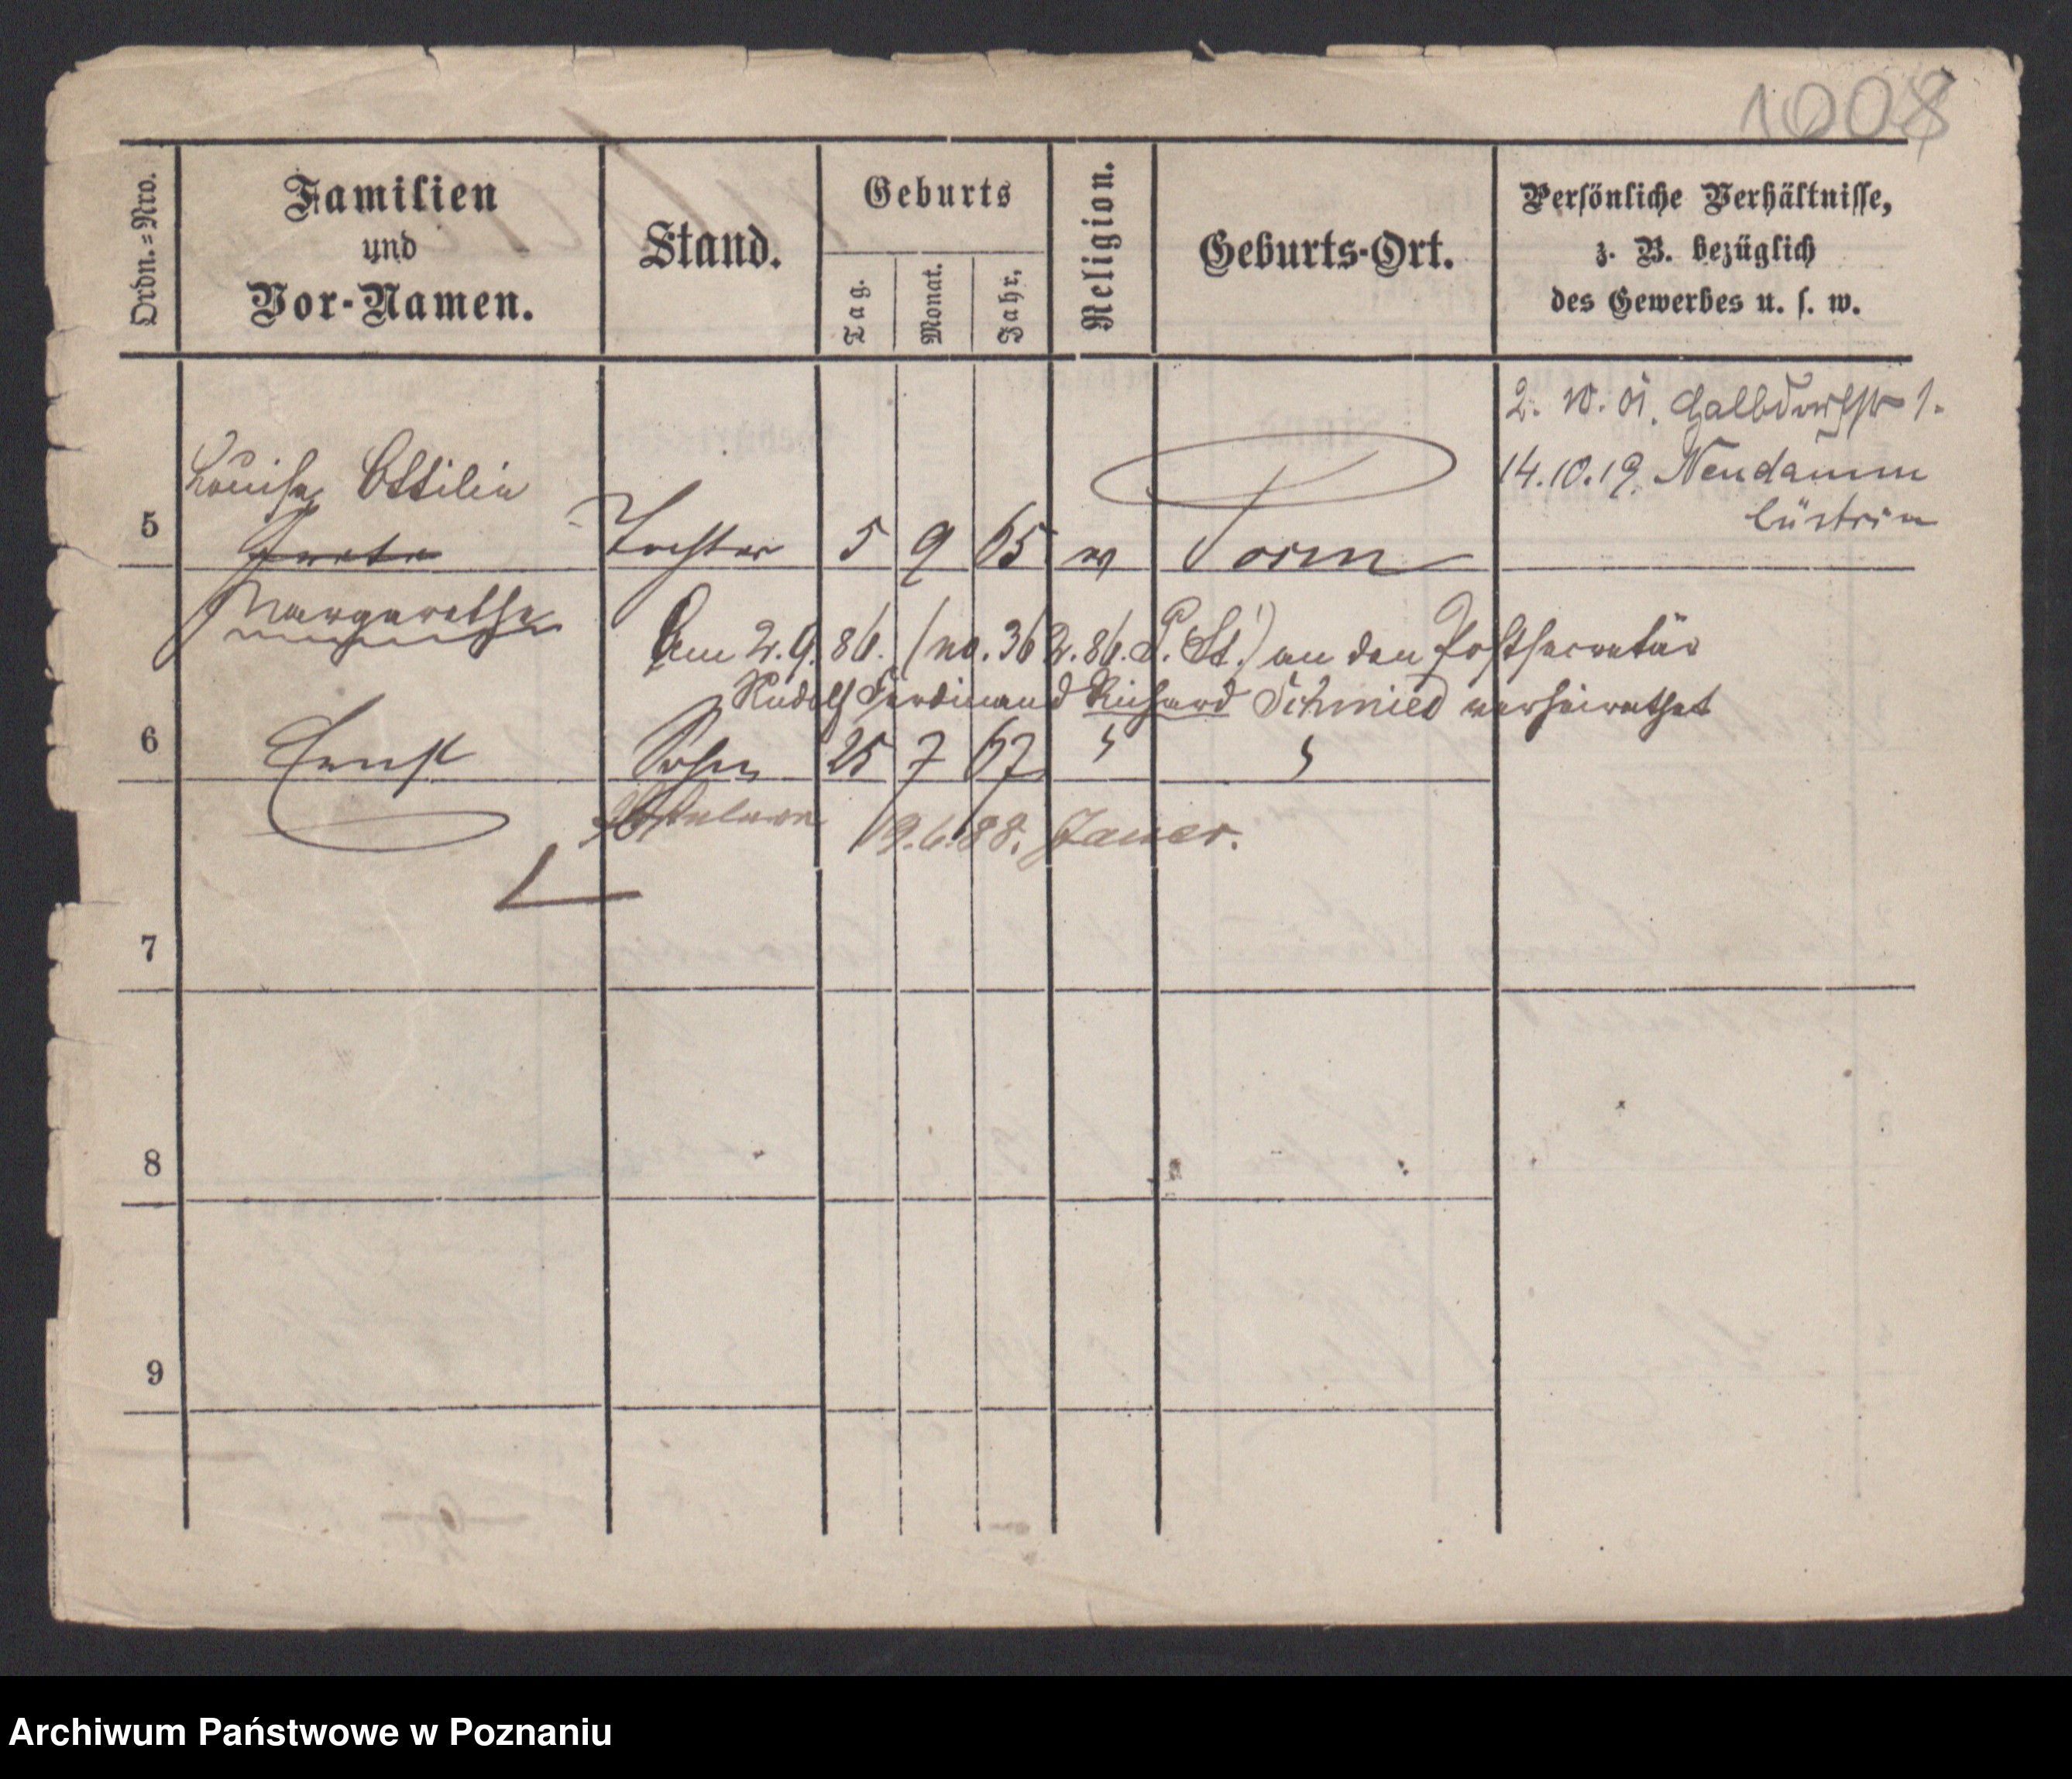 1008
Ordn.=Nro.
Familien
und
Vor-Namen.
Stand.
Geburts
Tag.
Monat.
Jahr.
Religion.
Geburts-Ort.
Persönliche Verhältnisse,
z. B. bezüglich
des Gewerbes u. s. w.
2. 10. 01. 1.
14.10.19. Neudamm
Cüstrin
Louise Ottilie
5 Tochter 5 9 65 Posen
Margarethe
Am 2.9.86. (no. 362.86. P. St.) an den Postsecretär
Rudolf Ferdinand Richard Schmied verheirathet
6 Ernst Sohn 25 7 67
19.6.88. Jauer.
7
8
9
Archiwum Państwowe w Poznaniu